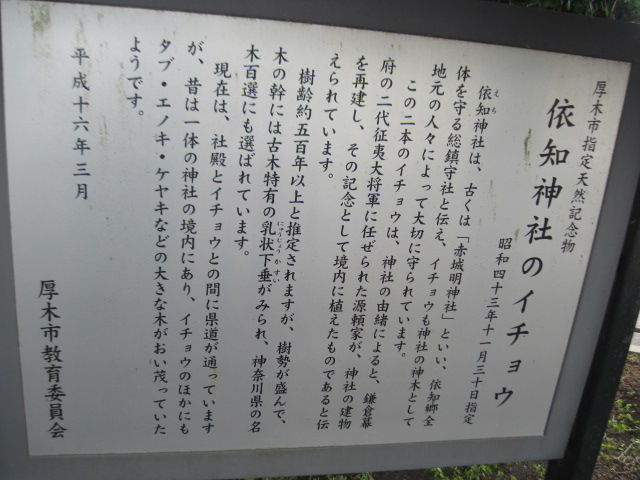 厚木市指定天然記念物
依知神社のイチョウ
昭和四十三年十一月三十日指定
えち
依知神社は、古くは「赤城明神社」といい、依知郷全
体を守る総鎮守社と伝え、イチョウも神社の神木として
地元の人々によって大切に守られています。
この二本のイチョウは、神社の由緒によると、鎌倉幕
府の二代征夷大将軍に任ぜられた源頼家が、神社の建物
を再建し、その記念として境内に植えたものであると伝
えられています。
樹齢約五百年以上と推定されますが、樹勢が盛んで、
にゅうじょうかすい
木の幹には古木特有の乳状下垂がみられ、神奈川県の名
木百選にも選ばれています。
現在は、社殿とイチョウとの間に県道が通っています
が、昔は一体の神社の境内にあり、イチョウのほかにも
タブ・エノキ・ケヤキなどの大きな木がおい茂っていた
ようです。
平成十六年三月
厚木市教育委員会